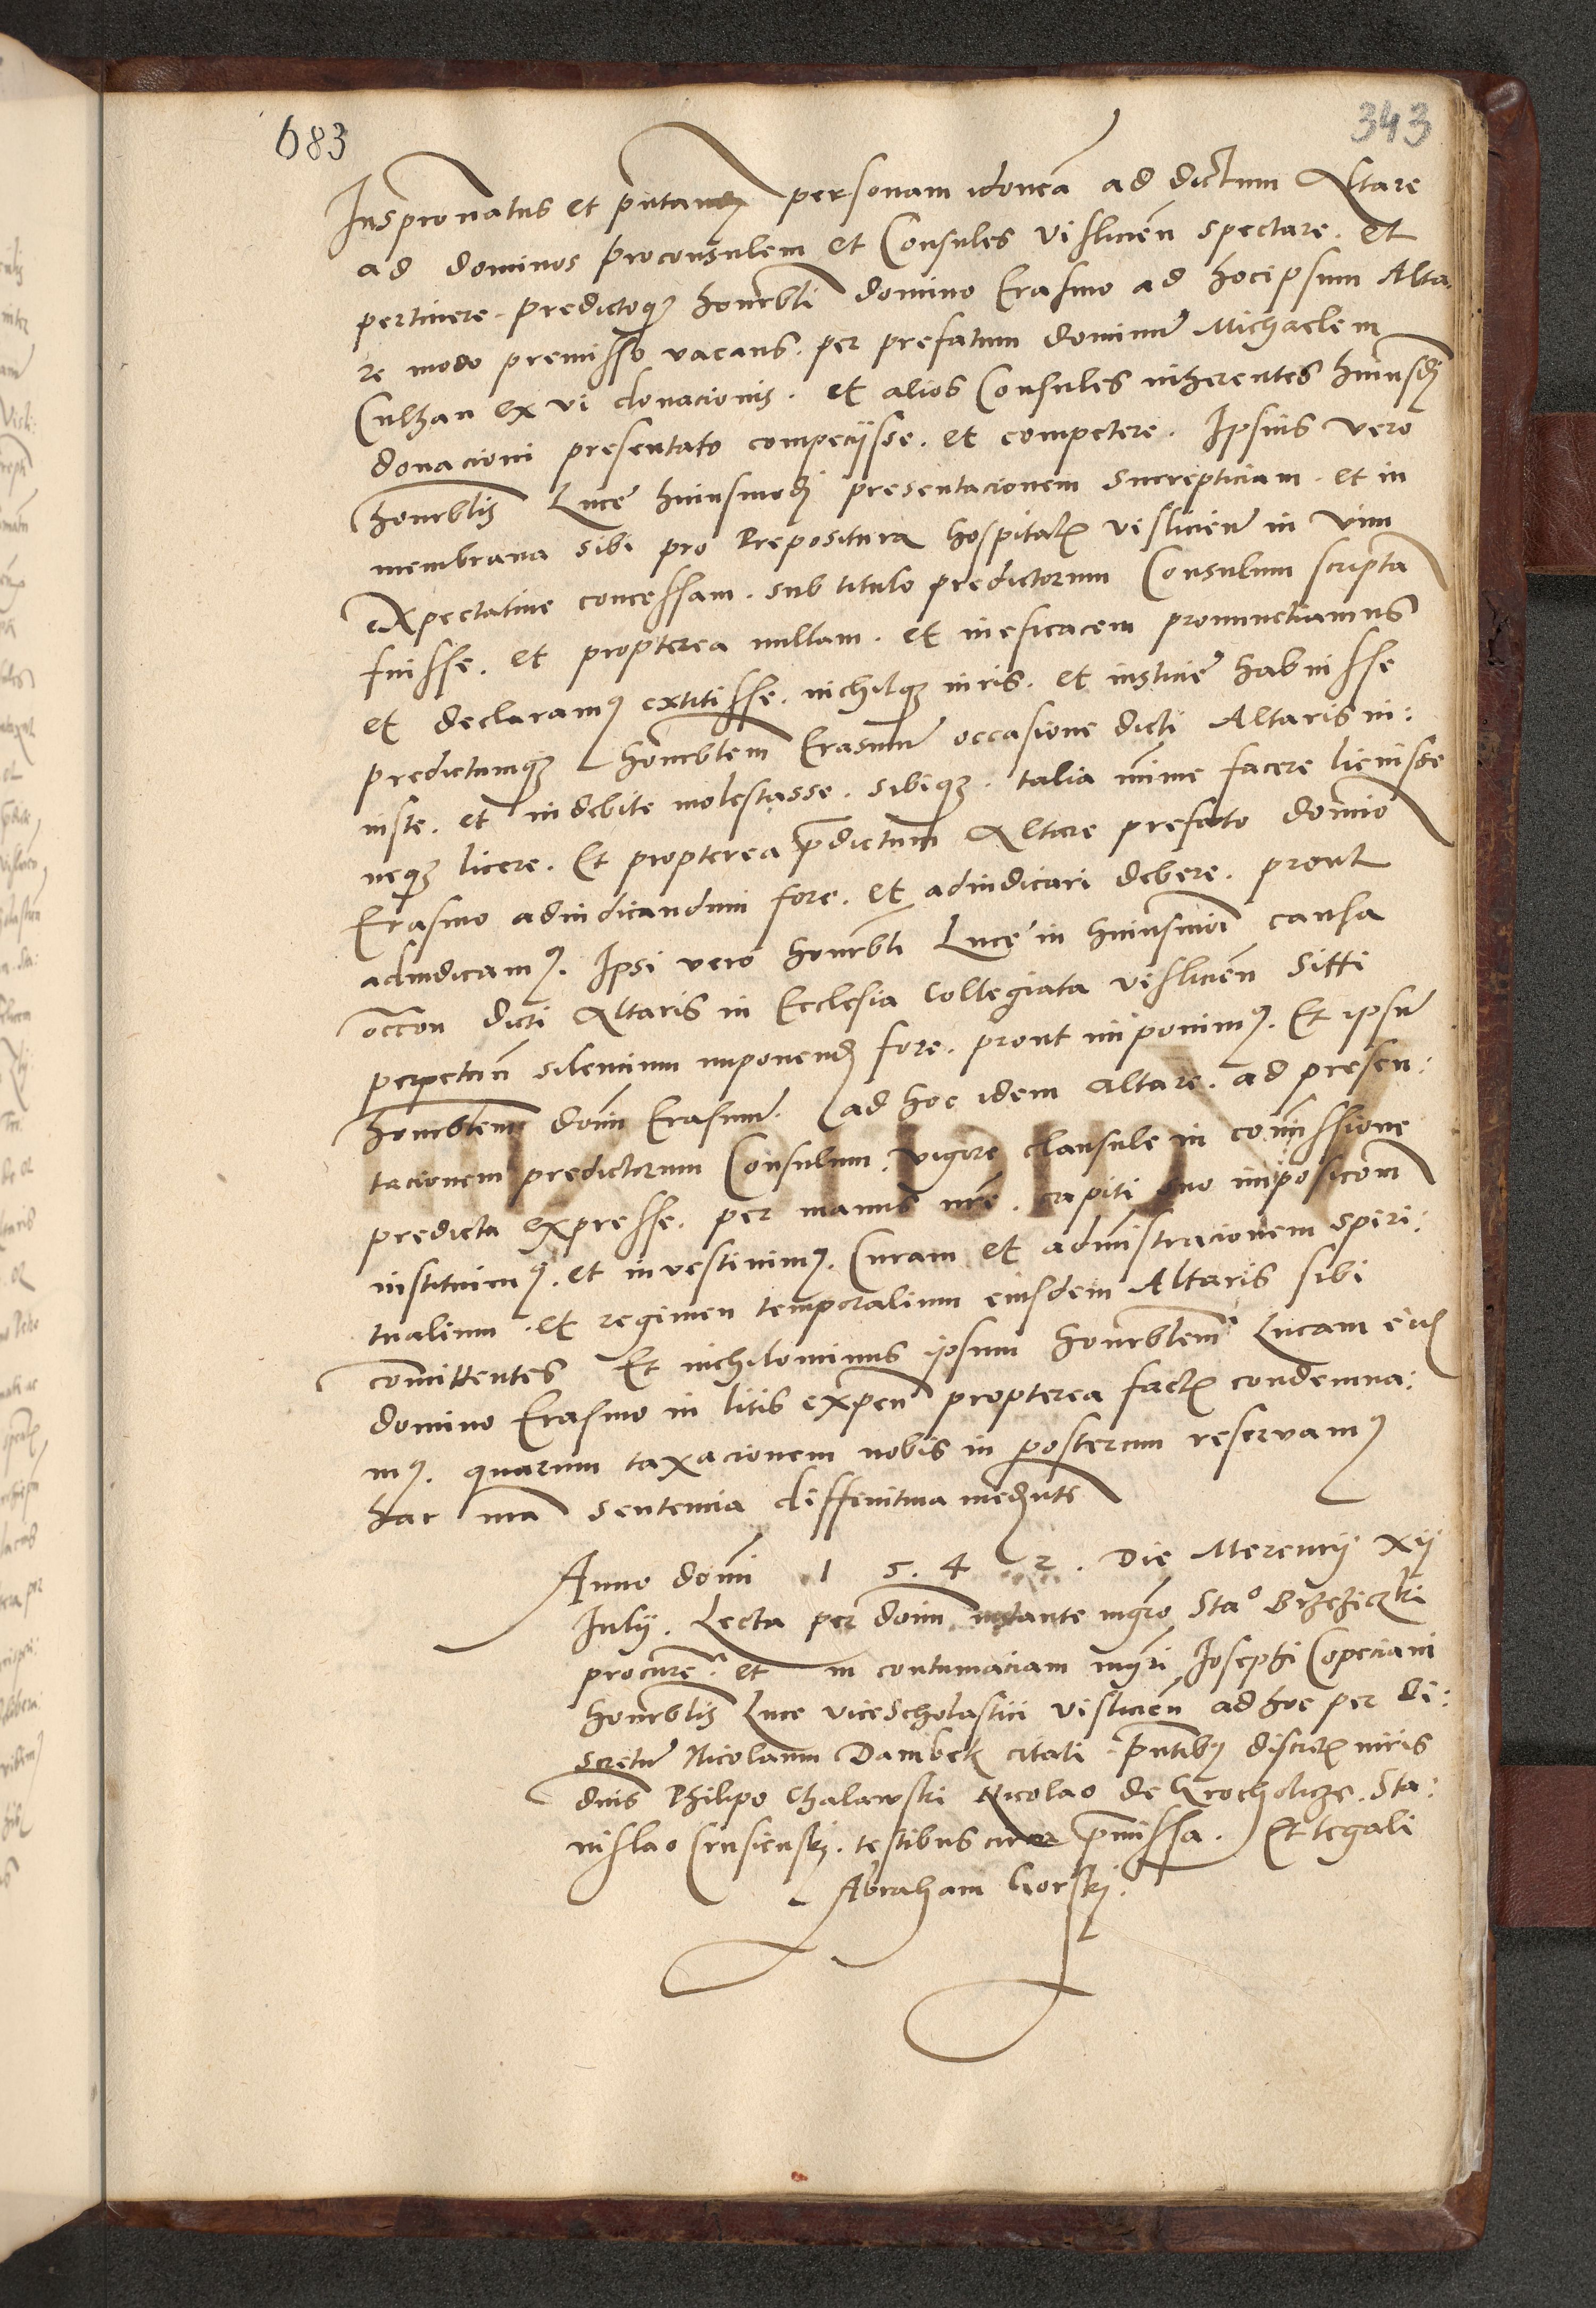 683
343
Juspronatus et pntandj personam idoneā ad dictum Altare
ad dominos proconsulem et Consules vislicień spectare. et
pertinere. predictoqȝ honrbli domino Erasmo ad hocipsum Alta
re modo premisso vacans. per prefatum dominū Michaelem
Culhan ex vi donacionis. et alios Consules inherentes huiusdj
donacioni presentato compeciisse. et competere. Ipsius vero
honrblis Luce huiusmodj presentacionem surrepticiam. et in
membrana sibi pro Prepositura hospitalꝭ vislicień in vim
expectative concessam. sub titulo predictorum Consulum scripta
fuisse. et propterea nullam. et ineficacem pronunctiamus
et declaramꝰ extitisse. nichilqȝ iuris. et iusticie habuisse
predictumqȝ honrblem Erasmū occasione dicti Altaris in:
iuste. et indebite molestasse. sibiqȝ. talia mīme facere licuisse
neqȝ licere. Et propterea p̄dictum Altare prefato domīo
Erasmo adiudicandum fore. et adiudicari debere. prout
adiudicamꝰ. Ipsi vero honrbli Luce in huiusmōi causa
occōn dicti Altaris in Ecclesia Collegiata vislicień sitti
perpetuū silencium imponendȝ fore. prout imponimꝰ. Et ipsū
honrblem dom̄ Erasmū. ad hoc idem altare. ad presen:
tacionem predictorum Consulum. vigore clausule in com̄issione
predicta expresse. per manus nr̄e. capiti suo imposicom̄
instituimꝰ. et investiuimꝰ. Curam et adm̄istracionem spiri:
tualium. et regimen temporalium eiusdem Altaris sibi
com̄ittentes Et nichilominus ipsum honrblem Lucam eidȝ
domino Erasmo in litis expeń propterea factꝭ condemna:
mꝰ. quarum taxacionem nobis in posterum reservamꝰ
hac nr̄a sentencia diffinitiva medjnte
Anno domī 1 5. 4 2. Die Mercurij xij
Julij. Lecta per dom̄ instante mgr̄o Staº Brzeziczki
procure. et in contumaciam mgr̄i Josephi Copeciani
honrblis Luce vicescholastici vislicień ad hoc per Di:
scretū Nicolaum Dambek citati. p̄ntibꝰ discretꝭ viris
dnis Philipo Chalawski Nicolao de Grocholicze. Sta:
nislao Crusienskj. testibus circa p̄missa. Et legali
Abraham Gorskj.